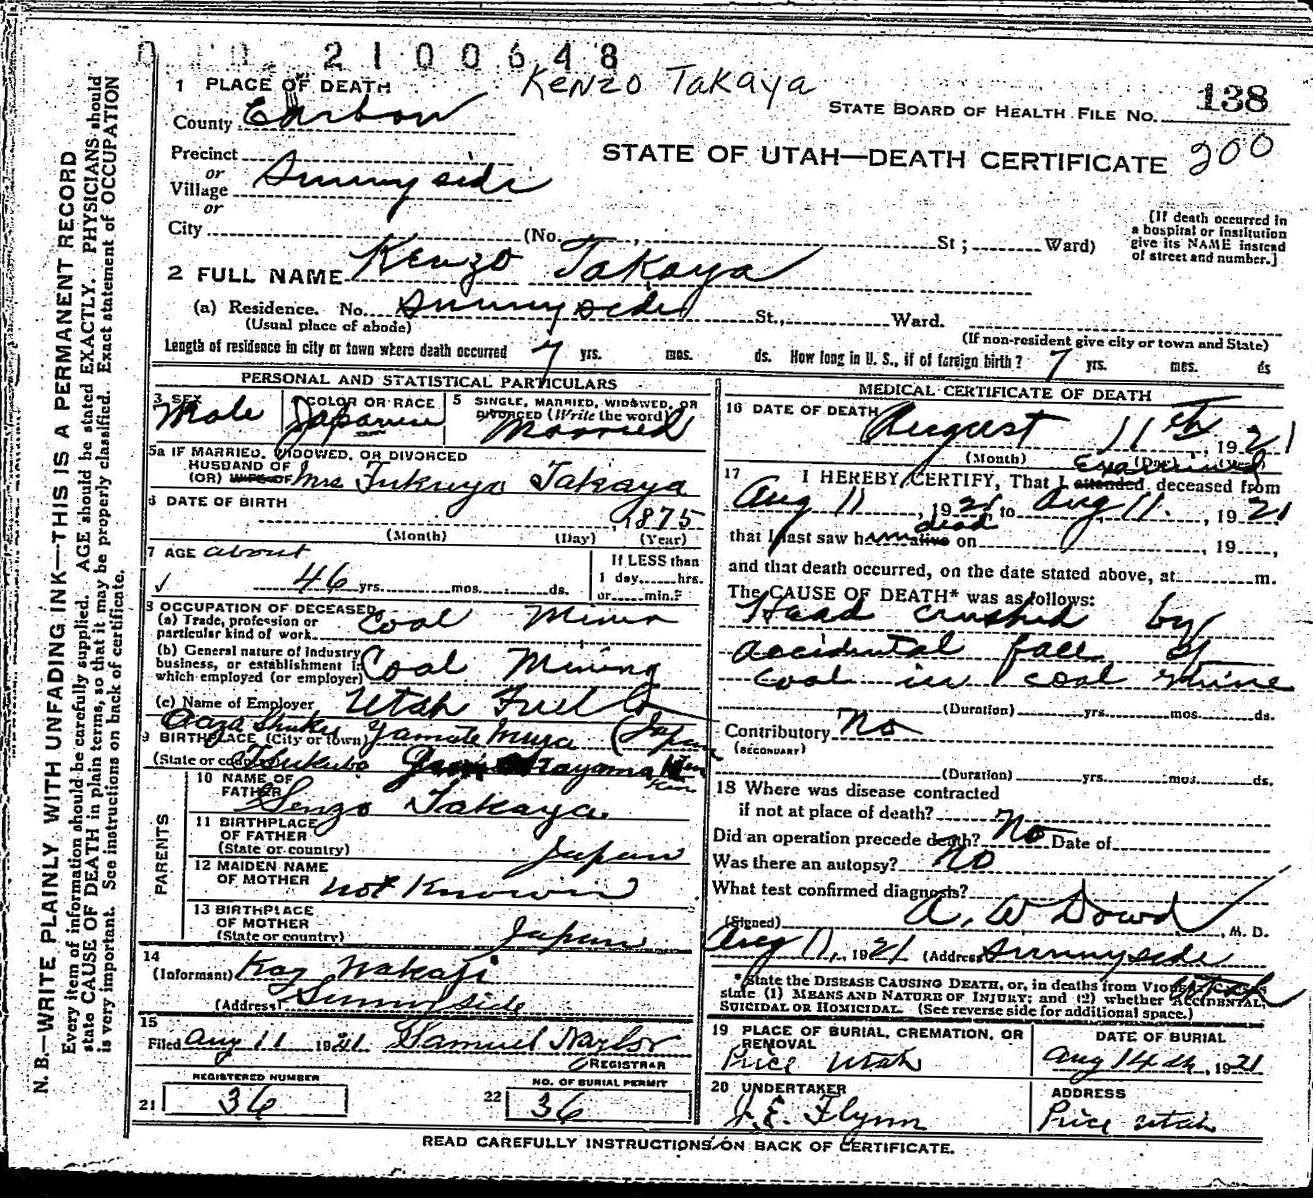 2100648
Kenzo Takaya
1 PLACE OF DEATH
STATE BOARD OF HEALTH FILE No. 138
County Carbon
STATE OF UTAH—DEATH CERTIFICATE 200
Precinct
or
Village Sunnyside
or
City (No. , St ; Ward)
(If death occurred in a hospital or institution give its NAME instead of street and number.]
2 FULL NAME Kenzo Takaya
(a) Residence. No. Sunnyside St., Ward.
(Usual place of abode) (If non-resident give city or town and State)
Length of residence in city or town where death occurred 7 yrs. mos. ds. How long in U. S., if of foreign birth? 7 yrs. mos. ds
PERSONAL AND STATISTICAL PARTICULARS
3 SEX Male
COLOR OR RACE Japanese
5 SINGLE, MARRIED, WIDOWED, OR DIVORCED (Write the word) Married
5a IF MARRIED, WIDOWED, OR DIVORCED
HUSBAND OF
(OR) WIFE OF Mrs Takaya
6 DATE OF BIRTH 1875
(Month) (Day) (Year)
7 AGE about
46 yrs. mos. ds.
If LESS than
1 day hrs.
or min.?
8 OCCUPATION OF DECEASED
(a) Trade, profession or
particular kind of work Coal Miner
(b) General nature of industry
business, or establishment in
which employed (or employer) Coal Mining
(c) Name of Employer Utah Fuel Co
9 BIRTHPLACE (City or town) (Japan
(State or country)
PARENTS
10 NAME OF
FATHER Senzo Takaya
11 BIRTHPLACE
OF FATHER
(State or country) Japan
12 MAIDEN NAME
OF MOTHER not Known
13 BIRTHPLACE
OF MOTHER
(State or country) Japan
14
(Informant)
(Address) Sunnyside
15
Filed Aug 11 1921 Samuel Naylor
REGISTRAR
REGISTERED NUMBER
21 36
NO. OF BURIAL PERMIT
22 36
MEDICAL CERTIFICATE OF DEATH
16 DATE OF DEATH August 11th, 1921
(Month)
17 I HEREBY CERTIFY, That I attended Examined deceased from
Aug 11, 1921 to Aug 11., 1921
that I last saw him alive dead on , 19 ,
and that death occurred, on the date stated above, at m.
The CAUSE OF DEATH* was as follows:
Head crushed by
accidental fall of
coal in coal mine
(Duration) yrs. mos. ds.
Contributory No
(SECONDARY)
(Duration) yrs. mos. ds.
18 Where was disease contracted
if not at place of death?
Did an operation precede death? No Date of
Was there an autopsy? No
What test confirmed diagnosis?
(Signed) A. W Dowd, M. D.
Aug 11, 1921 (Address) Sunnyside
Utah
*State the DISEASE CAUSING DEATH, or, in deaths from VIOLENT CAUSES
state (1) MEANS AND NATURE OF INJURY; and (2) whether ACCIDENTAL,
SUICIDAL OR HOMICIDAL. (See reverse side for additional space.)
19 PLACE OF BURIAL, CREMATION, OR
REMOVAL
Price Utah
DATE OF BURIAL
Aug 14th, 1921
20 UNDERTAKER
J. E. Flynn
ADDRESS
Price Utah
READ CAREFULLY INSTRUCTIONS ON BACK OF CERTIFICATE.
N. B.—WRITE PLAINLY WITH UNFADING INK—THIS IS A PERMANENT RECORD
Every item of information should be carefully supplied. AGE should be stated EXACTLY. PHYSICIANS should
state CAUSE OF DEATH in plain terms, so that it may be properly classified. Exact statement of OCCUPATION
is very important. See instructions on back of certificate.